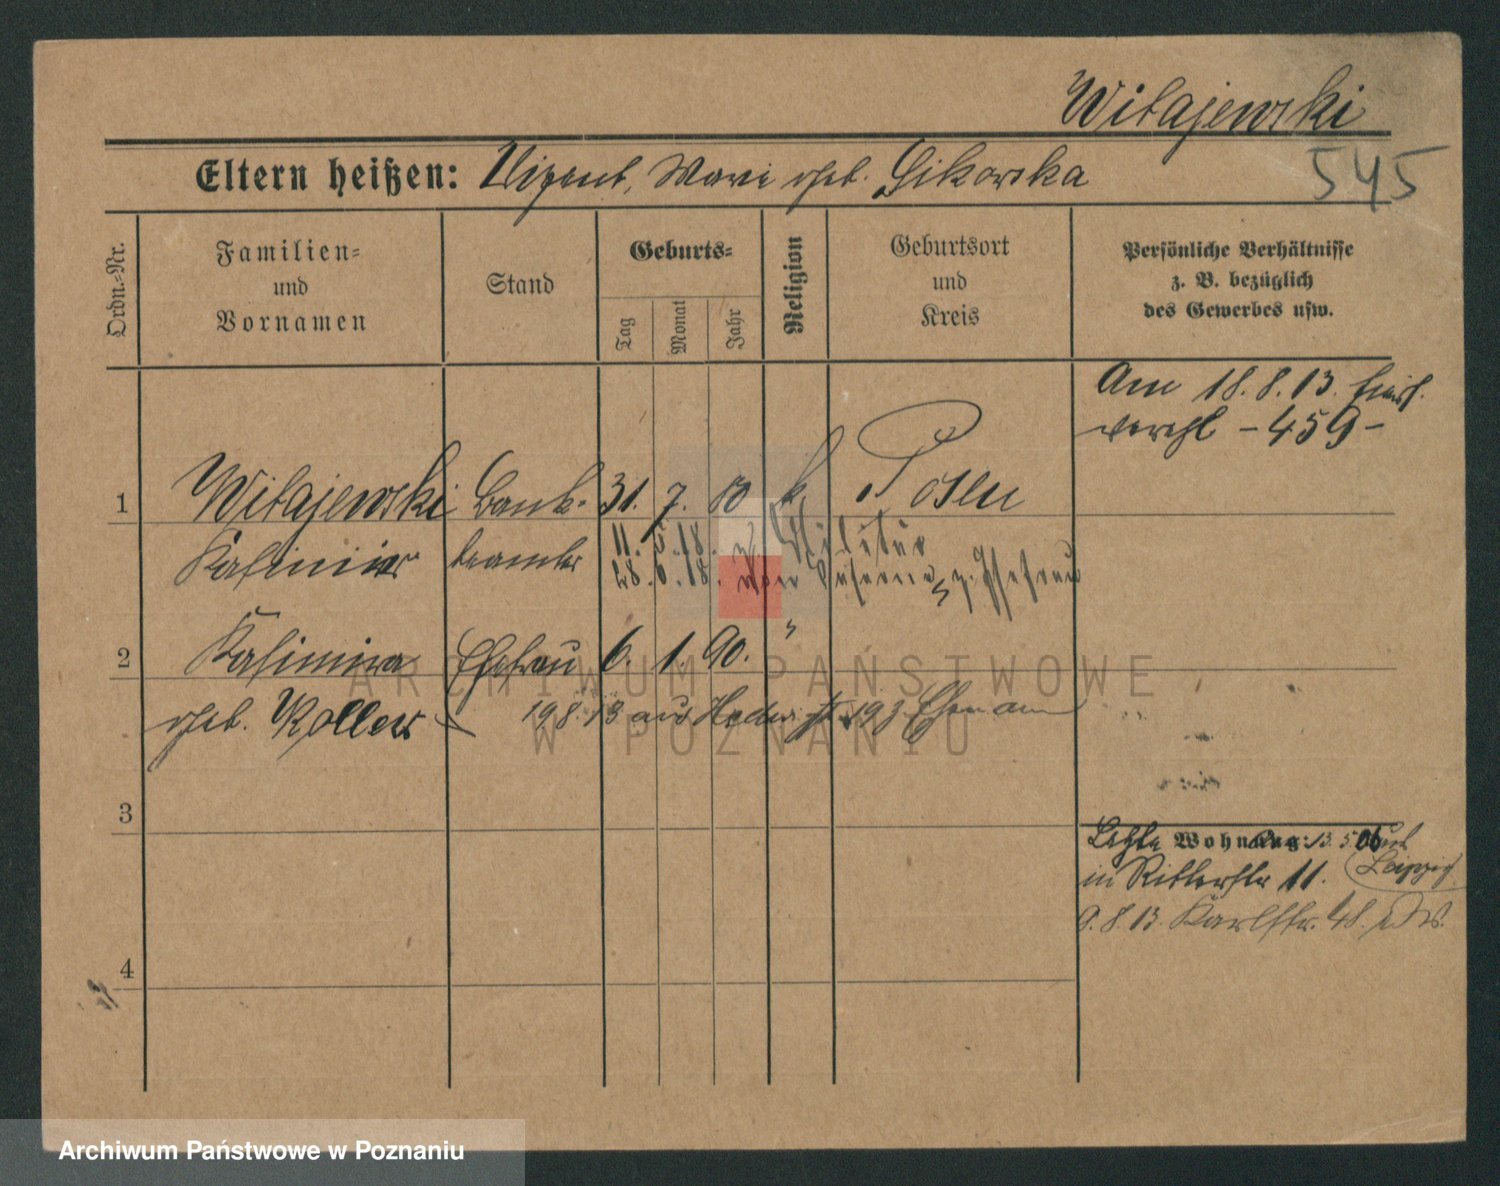 Witajewski
Eltern heißen: Vizent, Marie geb. Sikorska
545
Ordn.-Nr.
Familien-
und
Vornamen
Stand
Geburts-
Tag
Monat
Jahr
Religion
Geburtsort
und
Kreis
Persönliche Verhältnisse
z. B. bezüglich
des Gewerbes usw.
Am 18.8.13. hier
verehl -459-
1 Witajewski Bank- 31. 7. 80 k. Posen
Kasimir beamter
11.5.18. z. Militär
28.6.18. von z. Ehefrau
2 Kasimira Ehefrau 6. 1. 90. "
geb. Koller
19.8.13 aus z. Ehemann
3
Letzte Wohnung: 13.5.06
in Ritterstr 11. Leipzig
9.8.13. Karlstr. 48.
4
ARCHIWUM PAŃSTWOWE
W POZNANIU
Archiwum Państwowe w Poznaniu